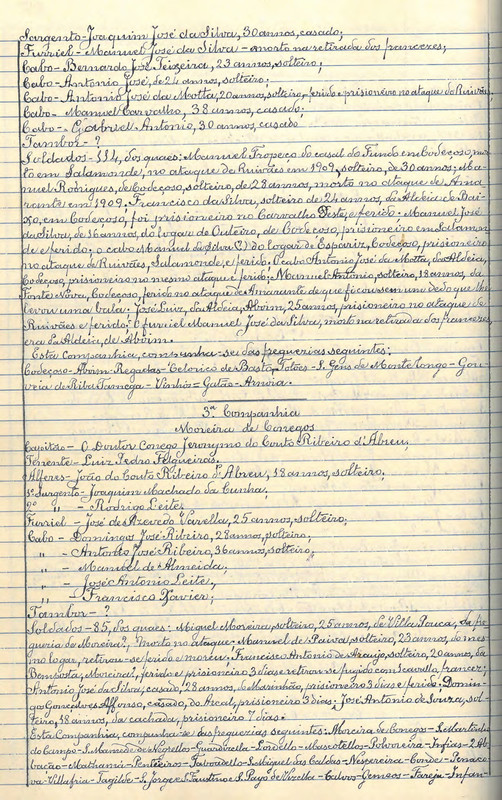 Sargento-Joaquim José da Silva, 30 annos, casado;
Furriel-Manuel José da Silva-morto na retirada dos francezes;
Cabo-Bernardo José Teixeira, 23 annos, solteiro;
Cabo-Antonio José, de 24 annos, solteiro;
Cabo-Antonio José da Motta, 20 annos, solteiro, ferido e prisioneiro no ataque de Ruivães,
Cabo-Manuel Carvalho, 38 annos, casado;
Cabo-Gabriel Antonio, 30 annos, casado
Tambor-?
Soldados-114, dos quaes: Manuel Tropeço do casal do Fundo em Codeçoso, mor-
to em Salamonde, no ataque de Ruivães em 1909, solteiro, de 30 annos; Ma-
nuel Rodrigues, de Codeçoso, solteiro, de 28 annos, morto no ataque de Ama
rante em 1909. Francisco da Silva, solteiro de 24 annos, da Aldeia de Bai-
xo, em Codeçoso, foi prisioneiro no Carvalho d'Este, e ferido. Manuel José
da Silva, de 16 annos, do logar de Outeiro, de Codeçoso, prisioneiro em Salamon
de e ferido; o cabo Manuel da Silva (2º) do logar de Espariz, Codeçoso, prisioneiro
no ataque de Ruivães, Salamonde, e ferido. O cabo Antonio José da Motta, da Aldeia,
Codeçoso, prisioneiro no mesmo ataque e ferido; Manuel Antonio, solteiro, 18 annos, da
Fonte Nova, Codeçoso, ferido no ataque de Amarante de que ficou sem um dedo que lhe
levou uma bala. José Luiz, da Aldeia, Aboim, 25 annos, prisioneiro no ataque de
Ruivães e ferido; O furriel Manuel José da Silva, morto na retirada dos francezes,
era da Aldeia, de Aboim.
Esta Companhia, compunha-se das freguezias seguintes:
Codeçoso-Aboim-Regadas-Celorico de Basto-Fotões-S. Gens de Monte Longo-Gou-
veia de Riba Tamega-Vinhós-Gatão-Arnoia.
3ª Companhia
Moreira de Conegos
Capitão-O Doutor Conego Jeronymo do Couto Ribeiro d'Abreu,
Tenente-Luiz Pedro Felgueiras.
Alferes-João do Couto Ribeiro d'Abreu, 18 annos, solteiro;
1º Sargento-Joaquim Machado da Cunha;
2º " -Rodrigo Leite
Furriel-José de Azevedo Varella, 25 annos, solteiro;
Cabo-Domingos José Ribeiro, 28 annos, solteiro;
" -Antonio José Ribeiro, 36 annos, solteiro;
" -Manuel de Almeida;
" -José Antonio Leite,
" -Francisco Xavier;
Tambor-?
Soldados-85, dos quaes: Miguel Moreira, solteiro, 25 annos, de Villa Pouca, da fre
guezia de Moreira, morto no ataque; Manuel de Paiva, solteiro, 23 annos, do mes-
mo logar, retirou-se ferido e morreu; Francisco Antonio de Araujo, solteiro, 20 annos, da
Bemposta, Moreira, ferido e prisioneiro 3 dias e retirou-se fugido com 1 cavallo francez;
Antonio José da Silva, casado, 28 annos, de Marinhão, prisioneiro 3 dias e ferido; Domin-
gos Gonçalves Affonso, casado, do Arcal, prisioneiro 3 dias; José Antonio de Souza, sol-
teiro, 18 annos, da cachada, prisioneiro 7 dias.
Esta Companhia, compunha-se das freguezias seguintes: Moreira de Conegos-S. Martinho
do Campo-S. Mamede de Negrellos-Guardizella-Lordello-Mascotellos-Polvoreira-Infias-2 Ab-
bação-Mathamá-Penteeiro-Taboadello-S. Miguel das Caldas-Nespereira-Conde-Serze-
va-Villafria-Tagilde-S. Jorge e S. Faustino e S. Payo de Vizella-Calvos-Gemeos-Fareja-Infan-